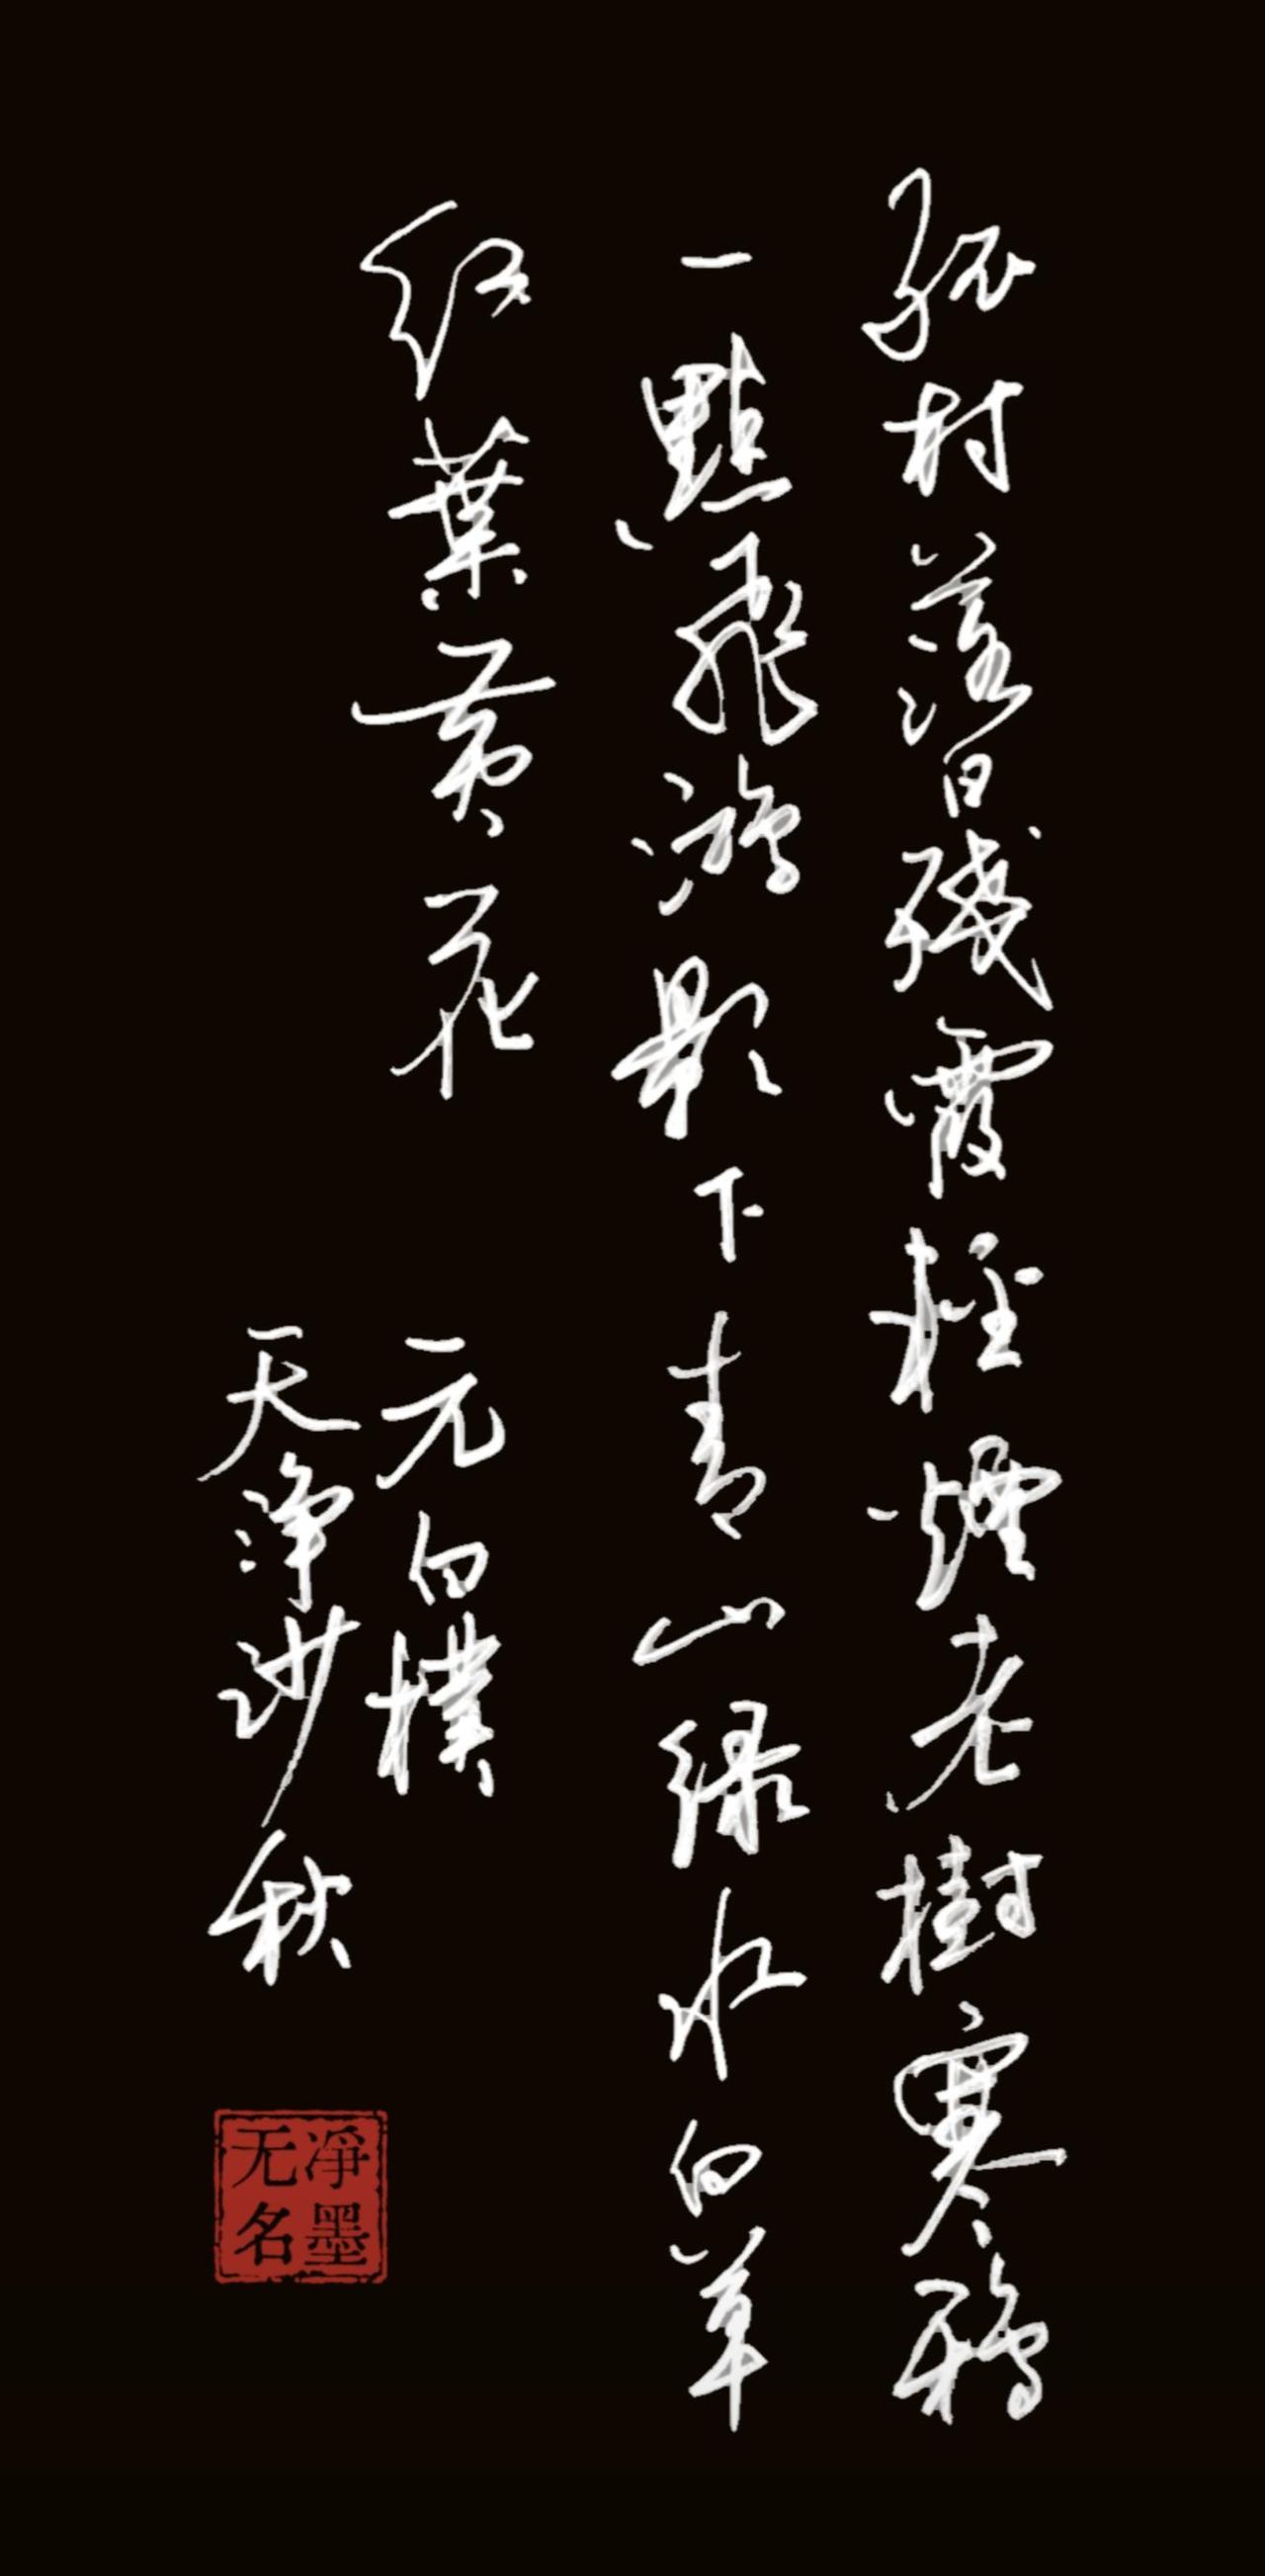 孤村落日殘霞輕煙老樹寒鴉
一點飛鴻影下青山綠水白草
紅葉黃花
元白樸
天淨沙秋
淨墨
无名